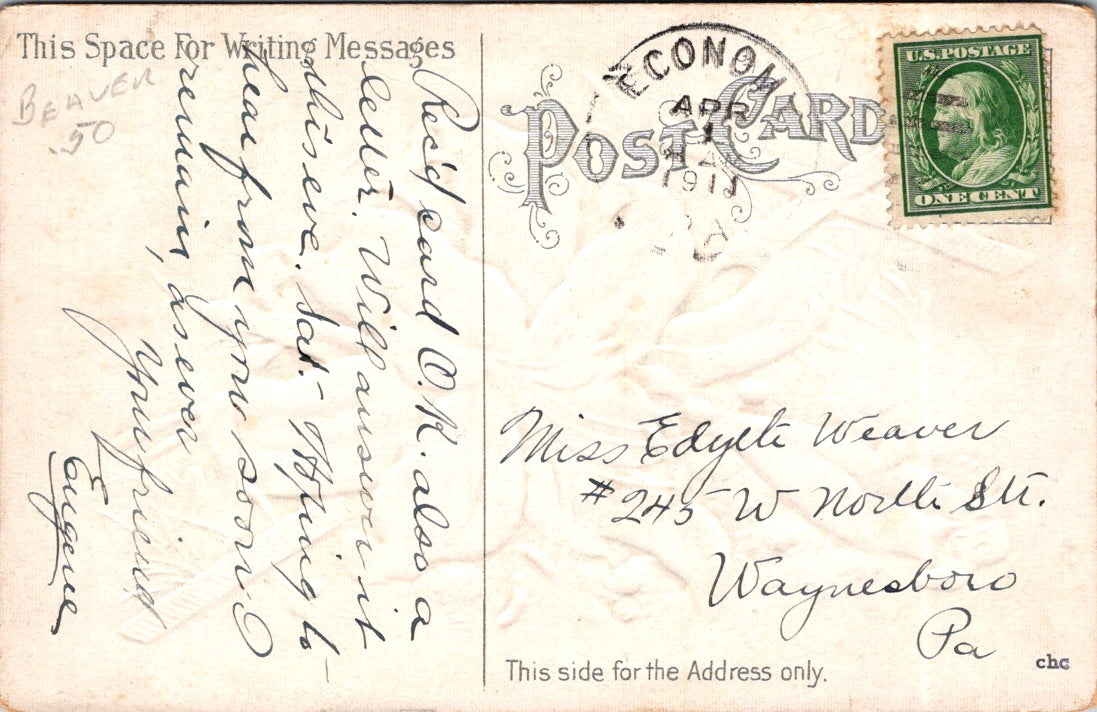 This Space For Writing Messages
BEAVER
.50
Rec'd card O.K. also a
letter. Will answer it
this eve. Sat. Hoping to
hear from you soon I
remain, as ever
Your friend
Eugene
POST CARD
ECONOM
APR
1
AM
1911
PA
U.S. POSTAGE
ONE CENT
Miss Edythe Weaver
#245 W North Str.
Waynesboro
Pa
This side for the Address only.
chc